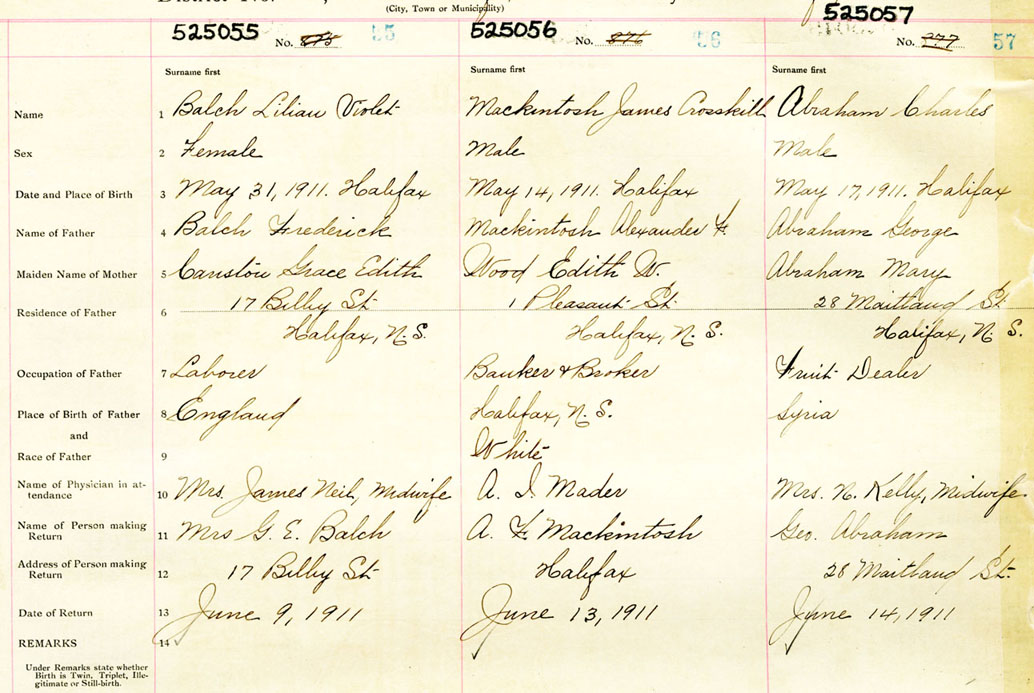 (City, Town or Municipality)
525055 No. 55
525056 No. 56
525057 No. 277 57
Surname first Surname first Surname first
Name 1 Balch Lilian Violet Mackintosh James Crosskill Abraham Charles
Sex 2 Female Male Male
Date and Place of Birth 3 May 31, 1911. Halifax May 14, 1911. Halifax May 17, 1911. Halifax
Name of Father 4 Balch Frederick Mackintosh Alexander F. Abraham George
Maiden Name of Mother 5 Canston Grace Edith Wood Edith W. Abraham Mary
Residence of Father 6 17 Bilby St 1 Pleasant St. 28 Maitland St.
Halifax, N. S. Halifax, N. S. Halifax, N. S.
Occupation of Father 7 Laborer Banker & Broker Fruit Dealer
Place of Birth of Father 8 England Halifax, N. S. Syria
and
Race of Father 9 White
Name of Physician in at-
tendance 10 Mrs. James Neil, Midwife A. I Mader Mrs. N. Kelly, Midwife
Name of Person making
Return 11 Mrs G. E. Balch A. F. Mackintosh Geo. Abraham
Address of Person making
Return 12 17 Bilby St Halifax 28 Maitland St.
Date of Return 13 June 9, 1911 June 13, 1911 June 14, 1911
REMARKS 14
Under Remarks state whether
Birth is Twin, Triplet, Ille-
gitimate or Still-birth.